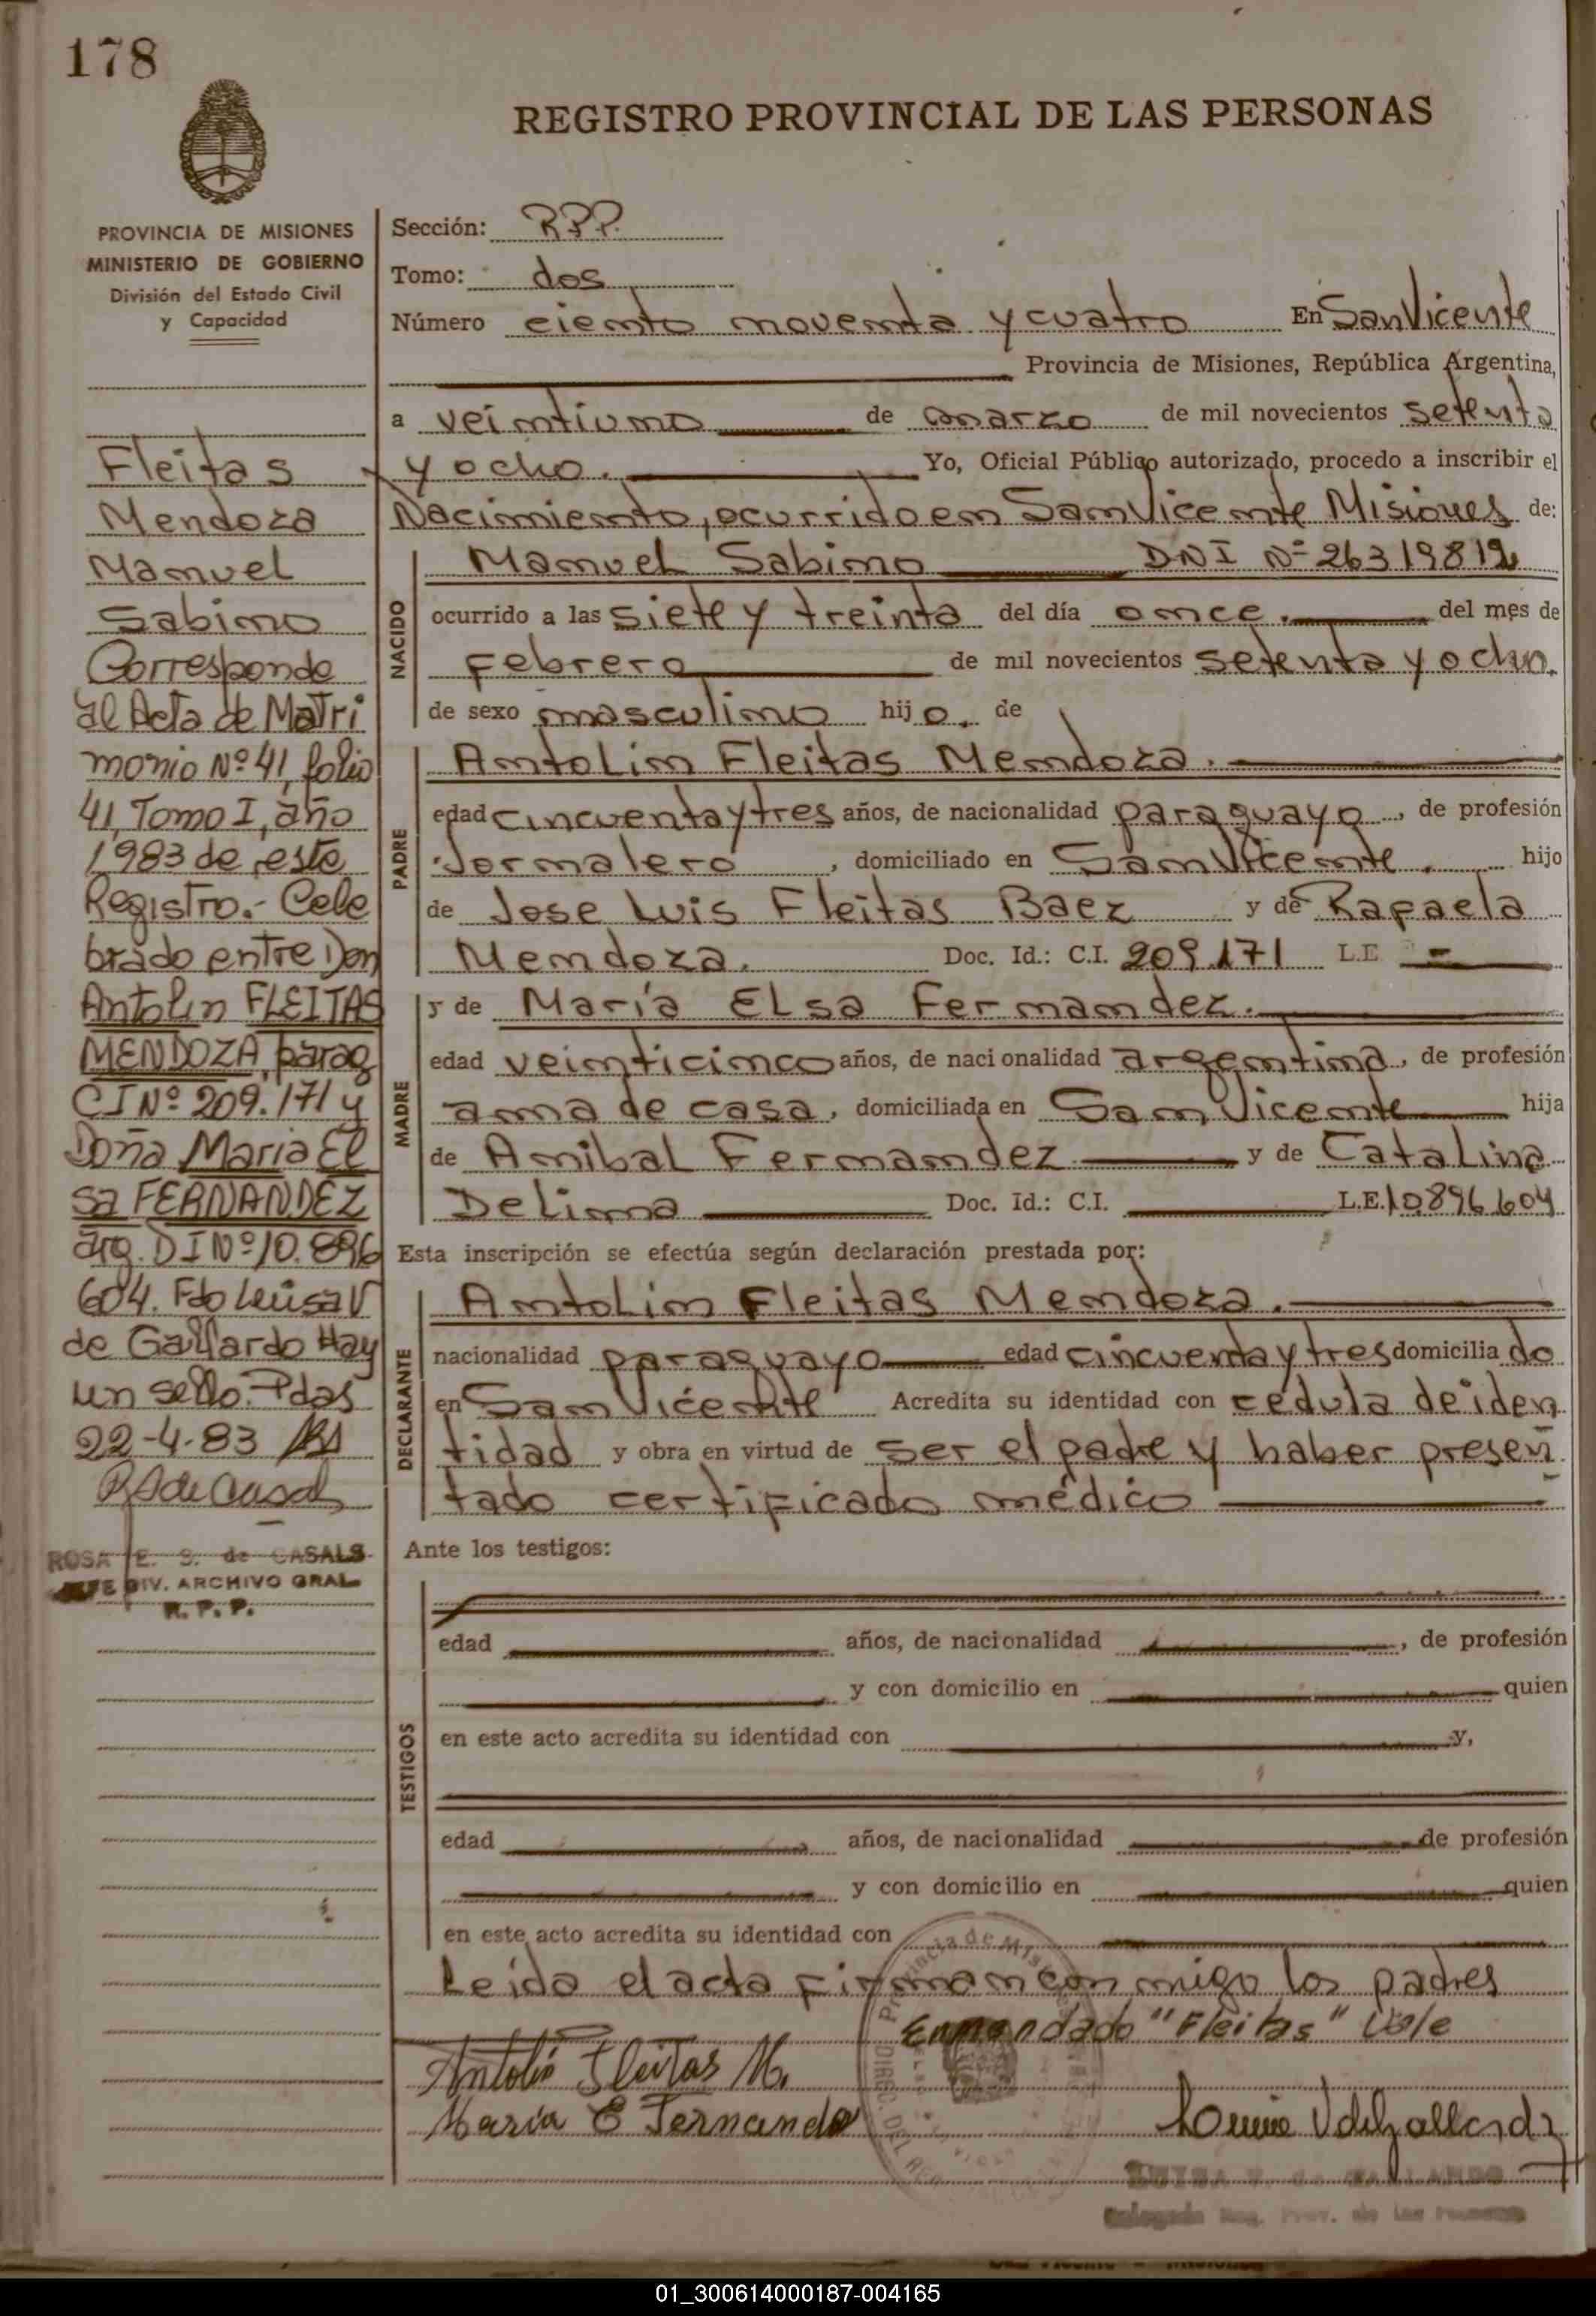 178
REGISTRO PROVINCIAL DE LAS PERSONAS
PROVINCIA DE MISIONES
MINISTERIO DE GOBIERNO
División del Estado Civil
y Capacidad
Fleitas
Mendoza
Manuel
Sabino
Corresponde
al Acta de Matri
monio Nº 41, folio
41, Tomo I, año
1983 de este
Registro.- Cele
brado entre Don
Antolin FLEITAS
MENDOZA, parag
CI Nº 209.171 y
Doña Maria El
sa FERNANDEZ
arg. DI Nº 10.896
604. Fdo Luisa V
de Gallardo Hay
un sello. Pdas
22-4-83
ROSA E. S. de CASALS
JEFE DIV. ARCHIVO GRAL.
R. P. P.
Sección: R.P.P.
Tomo: dos
Número ciento noventa y cuatro En San Vicente
Provincia de Misiones, República Argentina,
a veintiuno de marzo de mil novecientos setenta
y ocho. Yo, Oficial Público autorizado, procedo a inscribir el
Nacimiento, ocurrido en San Vicente Misiones de:
NACIDO
Manuel Sabino DNI Nº 26319812
ocurrido a las siete y treinta del día once. del mes de
febrero de mil novecientos setenta y ocho.
de sexo masculino hijo. de
PADRE
Antolin Fleitas Mendoza.
edad cincuenta y tres años, de nacionalidad paraguayo, de profesión
Jornalero, domiciliado en San Vicente. hijo
de Jose Luis Fleitas Baez y de Rafaela
Mendoza. Doc. Id.: C.I. 209.171 L.E. -
MADRE
y de María Elsa Fernandez.
edad veinticinco años, de nacionalidad argentina, de profesión
ama de casa, domiciliada en San Vicente hija
de Anibal Fernandez y de Catalina
Delima Doc. Id.: C.I. L.E. 10.896.604
Esta inscripción se efectúa según declaración prestada por:
DECLARANTE
Antolin Fleitas Mendoza.
nacionalidad paraguayo edad cincuenta y tres domiciliado
en San Vicente Acredita su identidad con cédula de iden
tidad y obra en virtud de ser el padre y haber presen
tado certificado médico
Ante los testigos:
TESTIGOS
edad años, de nacionalidad , de profesión
y con domicilio en quien
en este acto acredita su identidad con y,
edad años, de nacionalidad de profesión
y con domicilio en quien
en este acto acredita su identidad con
Leida el acta firman con migo los padres
Enmendado "Fleitas" Vale
Antolin Fleitas M.
Maria E Fernande
LUISA V. de GALLARDO
Delegada Reg. Prov. de las Personas
01_300614000187-004165